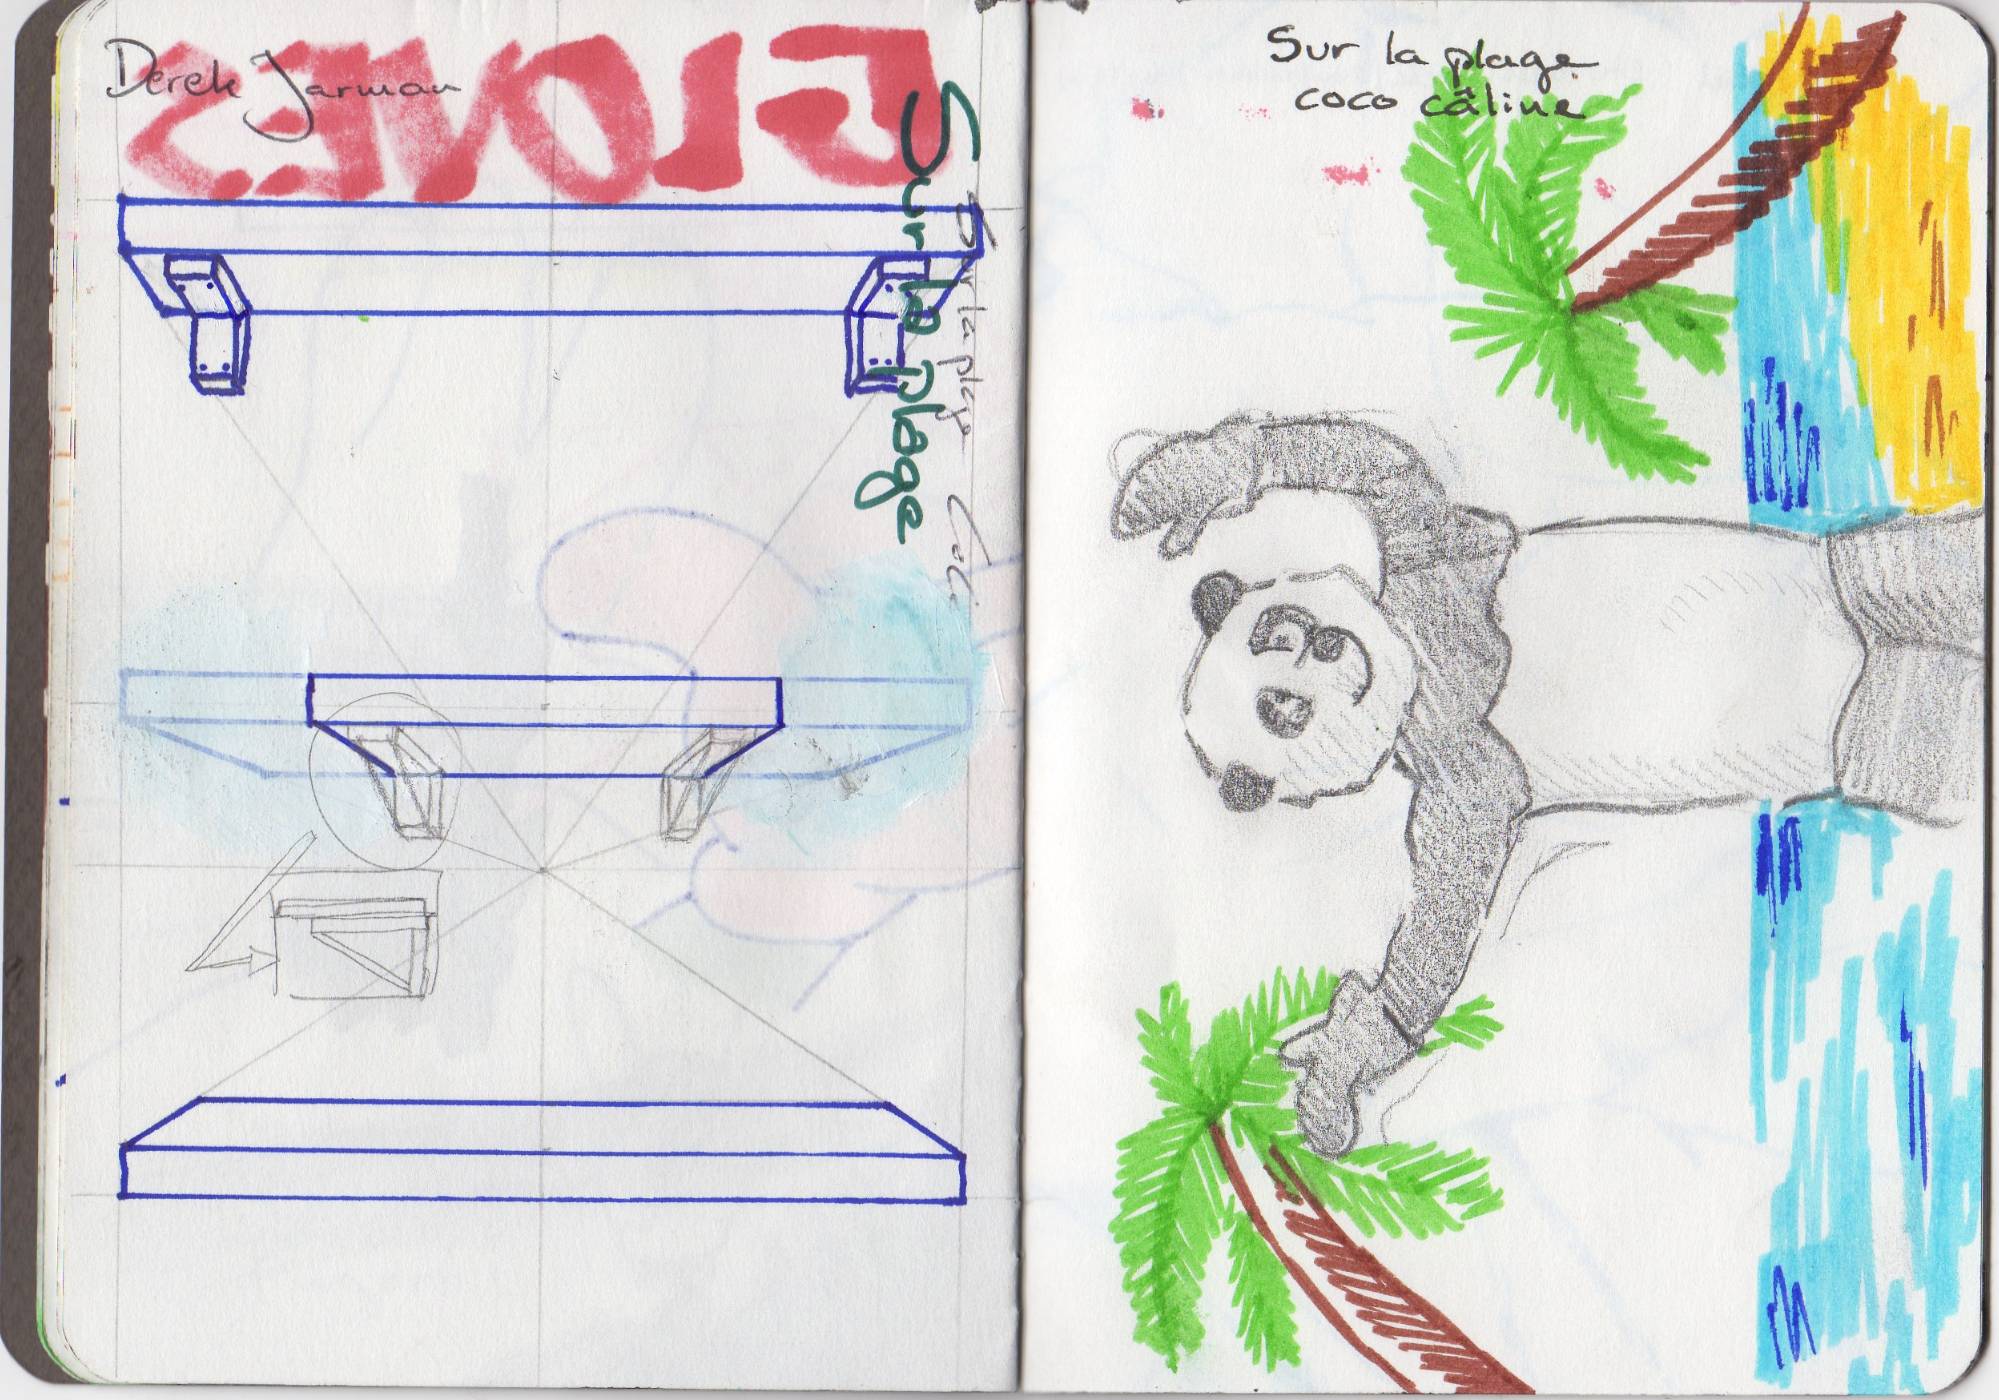 Derek Jarman
Sur la plage
Sur la plage
Sur la plage
coco câline